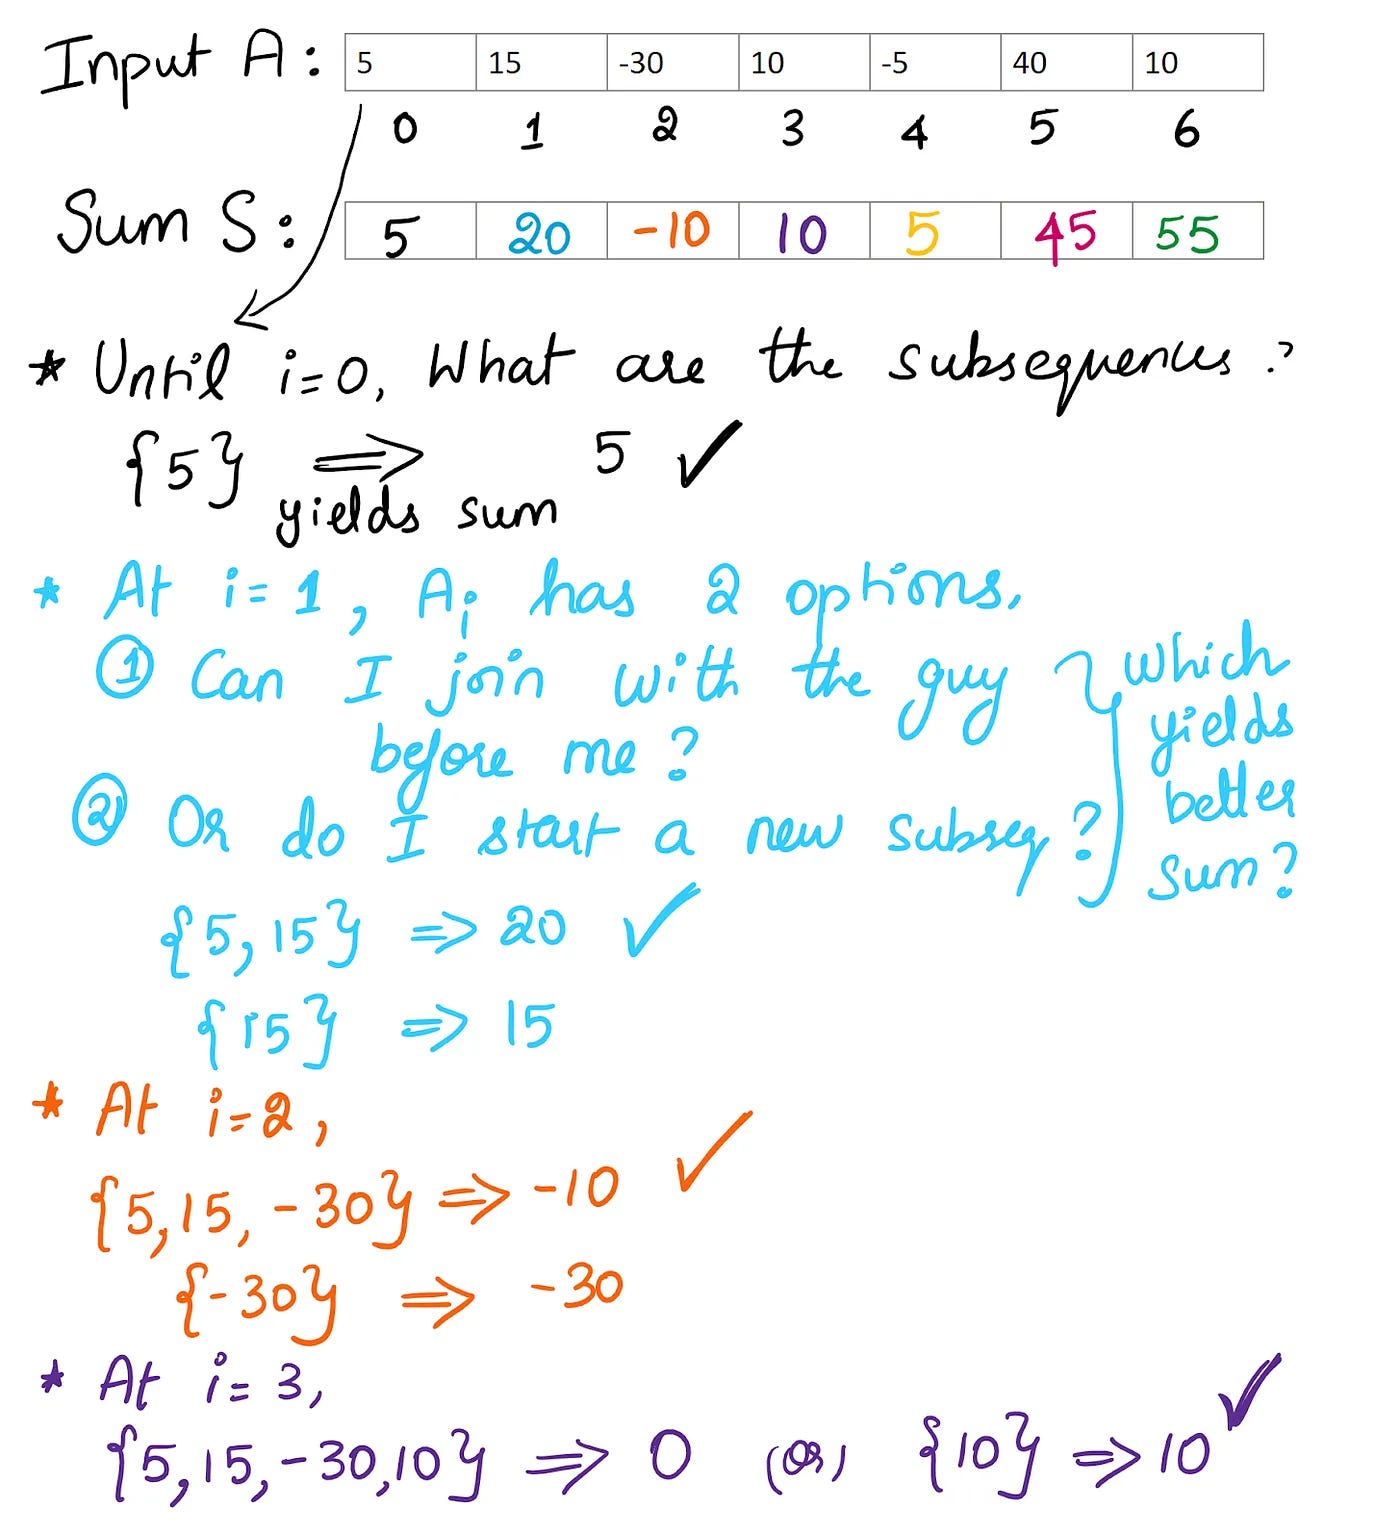 Input A: 5 15 -30 10 -5 40 10
0 1 2 3 4 5 6
Sum S: 5 20 -10 10 5 45 55
* Until i=0, What are the subsequences?
{5} ⟹ 5 ✓
yields sum
* At i=1, Ai has 2 options.
① Can I join with the guy
before me?
② Or do I start a new subseq?
} which
yields
better
sum?
{5,15} => 20 ✓
{15} => 15
* At i=2,
{5,15,-30} => -10 ✓
{-30} => -30
* At i=3,
{5,15,-30,10} => 0 (or) {10} => 10 ✓